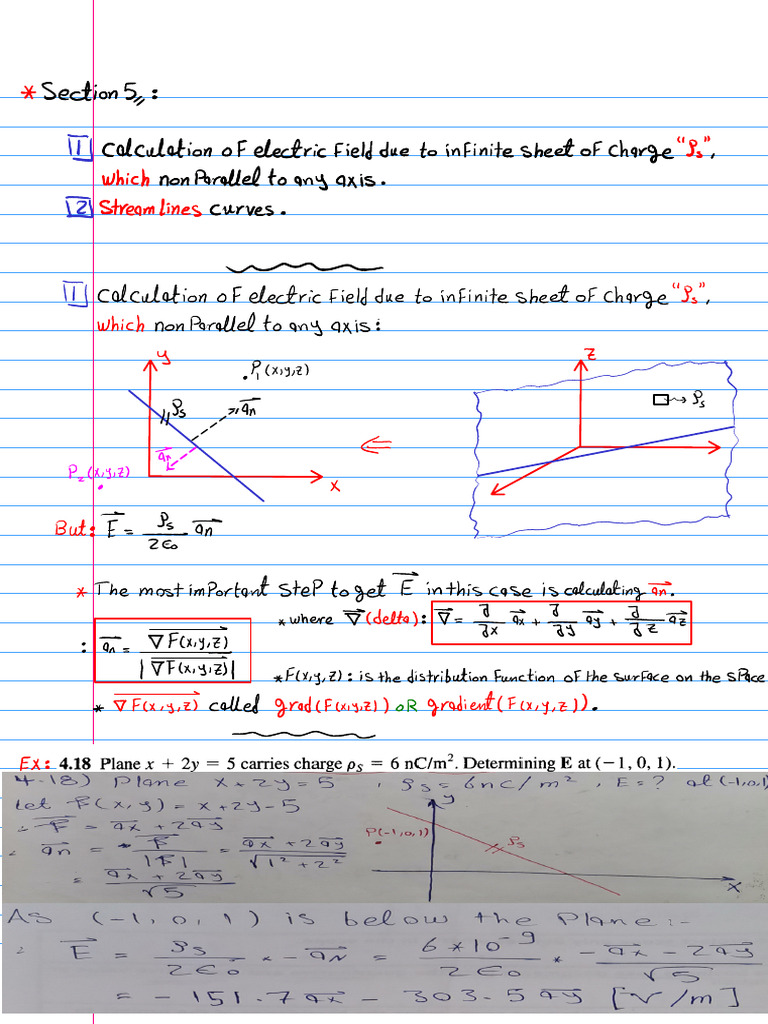 * Section 5 :
1 Calculation of electric Field due to infinite sheet of charge "ρs",
which non Parallel to any axis.
2 Streamlines curves.
1 Calculation of electric Field due to infinite sheet of charge "ρs",
which non Parallel to any axis:
y
P₁(x,y,z)
ρs
an
an
P₂(x,y,z)
x
z
ρs
But: E = ρs / 2ε₀ an
* The most important step to get E in this case is calculating an.
* where ∇ (delta): ∇ = ∂/∂x ax + ∂/∂y ay + ∂/∂z az
: an = ∇F(x,y,z) / |∇F(x,y,z)|
* F(x,y,z): is the distribution Function of the surface on the space
* ∇F(x,y,z) called grad(F(x,y,z)) OR gradient(F(x,y,z)).
Ex: 4.18 Plane x + 2y = 5 carries charge ρS = 6 nC/m². Determining E at (−1, 0, 1).
4.18) Plane x+2y=5 , ρs = 6nc/m² , E=? at (-1,0,1)
Let F(x,y) = x+2y-5
∴ F = ax + 2ay
∴ an = F / |F| = ax + 2ay / √1²+2²
= ax + 2ay / √5
y
P(-1,0,1)
ρs
x
As (-1,0,1) is below the Plane:-
∴ E = ρs / 2ε₀ * -aN = 6*10⁻⁹ / 2ε₀ * -ax - 2ay / √5
= -151.7ax - 303.5ay [V/m]